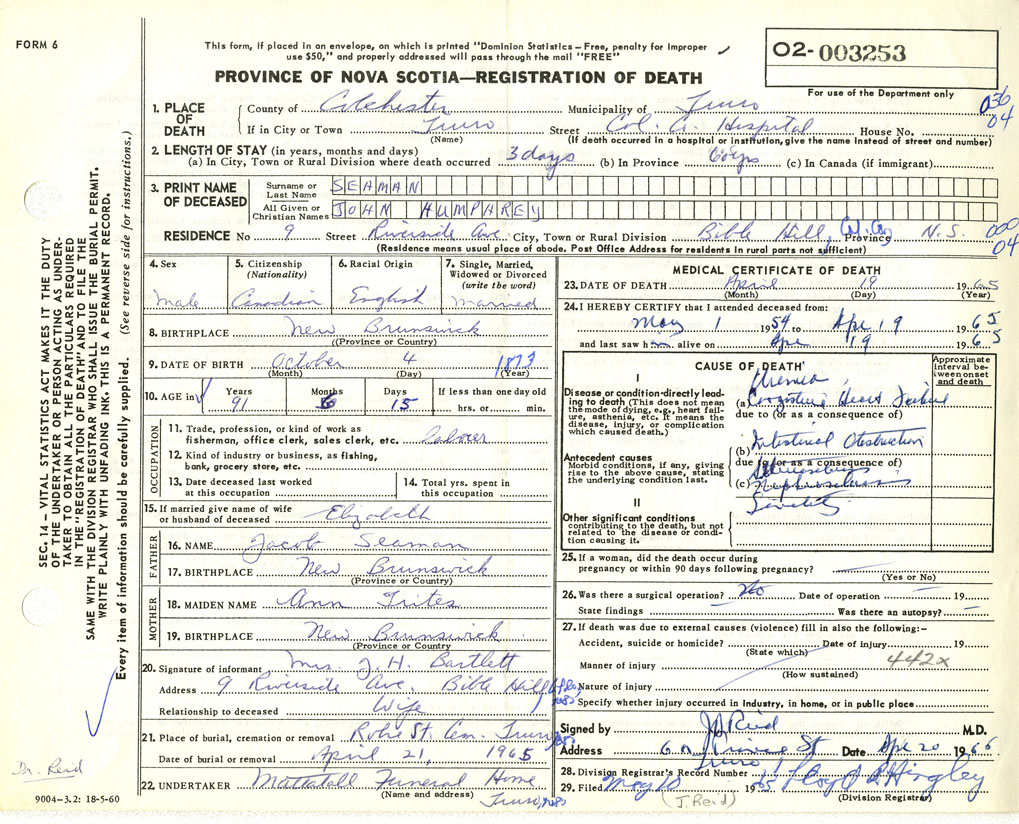 FORM 6
This form, if placed in an envelope, on which is printed "Dominion Statistics – Free, penalty for improper
use $50," and properly addressed will pass through the mail "FREE"
02-003253
For use of the Department only
PROVINCE OF NOVA SCOTIA—REGISTRATION OF DEATH
036
04
1. PLACE OF DEATH
County of Colchester Municipality of Truro
If in City or Town Truro Street Col. Co. Hospital House No.
(Name) (If death occurred in a hospital or institution, give name instead of street and number)
2. LENGTH OF STAY (in years, months and days)
(a) In City, Town or Rural Division where death occurred 3 days (b) In Province 60 yrs (c) In Canada (if immigrant)
3. PRINT NAME OF DECEASED
Surname or Last Name SEAMAN
All Given or Christian Names JOHN HUMPHREY
RESIDENCE No 9 Street Riverside Ave. City, Town or Rural Division Bible Hill, Col. Co. Province N.S.
(Residence means usual place of abode. Post Office Address for residents in rural parts not sufficient)
000
04
4. Sex
Male
5. Citizenship
(Nationality)
Canadian
6. Racial Origin
English
7. Single, Married,
Widowed or Divorced
(write the word)
Married
8. BIRTHPLACE New Brunswick
(Province or Country)
9. DATE OF BIRTH October 4 1873
(Month) (Day) (Year)
10. AGE in Years 91 Months 6 Days 15 If less than one day old
hrs. or min.
OCCUPATION
11. Trade, profession, or kind of work as
fisherman, office clerk, sales clerk, etc. Laborer
12. Kind of industry or business, as fishing,
bank, grocery store, etc.
13. Date deceased last worked
at this occupation
14. Total yrs. spent in
this occupation
15. If married give name of wife
or husband of deceased Elizabeth
FATHER
16. NAME Jacob Seaman
17. BIRTHPLACE New Brunswick
(Province or Country)
MOTHER
18. MAIDEN NAME Ann Trites
19. BIRTHPLACE New Brunswick
(Province or Country)
20. Signature of informant Mrs. J. H. Bartlett
Address 9 Riverside Ave. Bible Hill
Relationship to deceased Wife
21. Place of burial, cremation or removal Robie St. Cem. Truro
Date of burial or removal April 21, 1965
22. UNDERTAKER Mattatall Funeral Home
(Name and address) Truro,
MEDICAL CERTIFICATE OF DEATH
23. DATE OF DEATH April 19 1965
(Month) (Day) (Year)
24. I HEREBY CERTIFY that I attended deceased from:
May 1 1954 to Apr 19 1965
and last saw him alive on Apr 19 1965
CAUSE OF DEATH
Approximate interval between onset and death
I
Disease or condition directly leading to death (This does not mean the mode of dying, e.g., heart failure, asthenia, etc. It means the disease, injury, or complication which caused death.)
Uremia
(a) Congestive Heart Failure
due to (or as a consequence of)
Antecedent causes
Morbid conditions, if any, giving rise to the above cause, stating the underlying condition last.
(b) Intestinal Obstruction
due to (or as a consequence of)
(c) Nephrosclerosis
II
Other significant conditions
contributing to the death, but not related to the disease or condition causing it.
Senility
25. If a woman, did the death occur during
pregnancy or within 90 days following pregnancy?
(Yes or No)
26. Was there a surgical operation? No Date of operation 19
State findings Was there an autopsy?
27. If death was due to external causes (violence) fill in also the following:–
Accident, suicide or homicide? Date of injury 19
(State which)
442X
Manner of injury
(How sustained)
Nature of injury
Specify whether injury occurred in industry, in home, or in public place
Signed by J. Reid M.D.
Address Prince St Date Apr 20 1965
Truro
28. Division Registrar's Record Number
29. Filed May 10 1965 Floyd Hingley
(J. Reid) (Division Registrar)
SEC. 14 – VITAL STATISTICS ACT MAKES IT THE DUTY
OF THE UNDERTAKER OR PERSON ACTING AS UNDER-
TAKER TO OBTAIN ALL THE PARTICULARS REQUIRED
IN THE "REGISTRATION OF DEATH" AND TO FILE THE
SAME WITH THE DIVISION REGISTRAR WHO SHALL ISSUE THE BURIAL PERMIT.
WRITE PLAINLY WITH UNFADING INK. THIS IS A PERMANENT RECORD.
Every item of information should be carefully supplied. (See reverse side for instructions.)
Dr. Reid
9004-3.2: 18-5-60